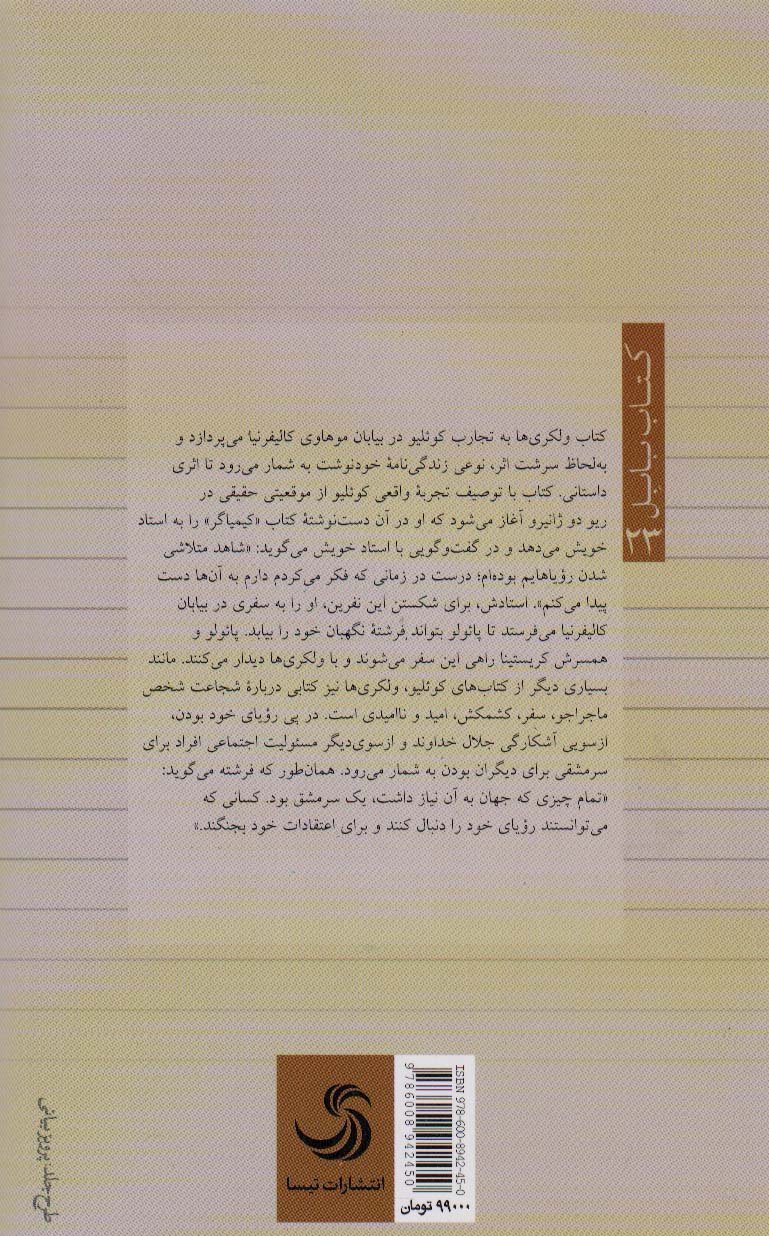 کتاب بابل
۲۳
کتاب ولکری‌ها به تجارب کوئلیو در بیابان موهاوی کالیفرنیا می‌پردازد و
به‌لحاظ سرشت اثر، نوعی زندگی‌نامهٔ خودنوشت به شمار می‌رود تا اثری
داستانی. کتاب با توصیف تجربهٔ واقعی کوئلیو از موقعیتی حقیقی در
ریو دو ژانیرو آغاز می‌شود که او در آن دست‌نوشتهٔ کتاب «کیمیاگر» را به استاد
خویش می‌دهد و در گفت‌وگویی با استاد خویش می‌گوید: «شاهد متلاشی
شدن رؤیاهایم بوده‌ام؛ درست در زمانی که فکر می‌کردم دارم به آن‌ها دست
پیدا می‌کنم». استادش، برای شکستن این نفرین، او را به سفری در بیابان
کالیفرنیا می‌فرستد تا پائولو بتواند فرشتهٔ نگهبان خود را بیابد. پائولو و
همسرش کریستینا راهی این سفر می‌شوند و با ولکری‌ها دیدار می‌کنند. مانند
بسیاری دیگر از کتاب‌های کوئلیو، ولکری‌ها نیز کتابی دربارهٔ شجاعت شخص
ماجراجو، سفر، کشمکش، امید و ناامیدی است. در پی رؤیای خود بودن،
ازسویی آشکارگی جلال خداوند و ازسوی‌دیگر مسئولیت اجتماعی افراد برای
سرمشقی برای دیگران بودن به شمار می‌رود. همان‌طور که فرشته می‌گوید:
«تمام چیزی که جهان به آن نیاز داشت، یک سرمشق بود. کسانی که
می‌توانستند رؤیای خود را دنبال کنند و برای اعتقادات خود بجنگند.»
ISBN 978-600-8942-45-0
9786008942450
۹۹۰۰۰ تومان
انتشارات تیسا
طرح جلد: پرویز بیانی